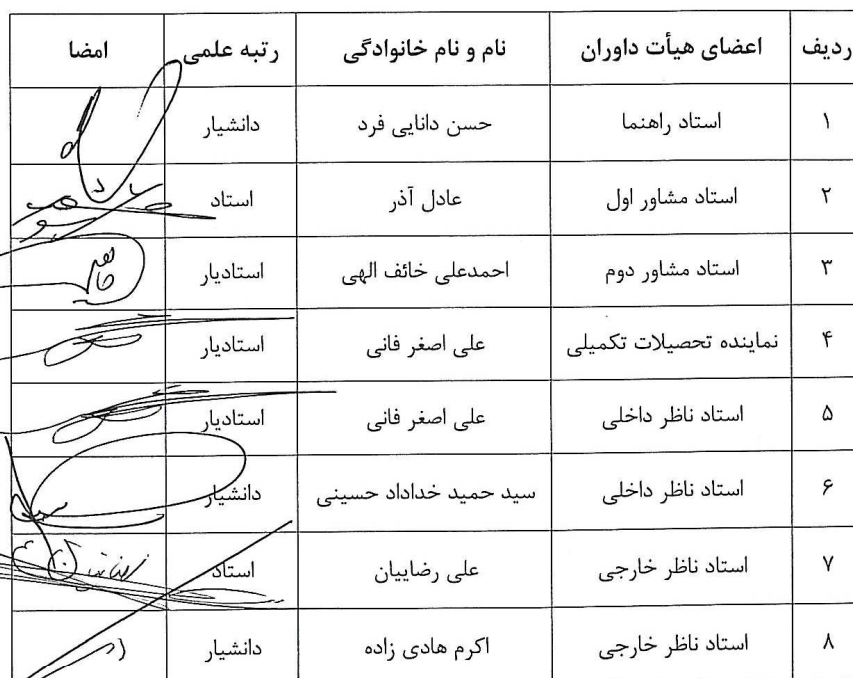 ردیف اعضای هیأت داوران نام و نام خانوادگی رتبه علمی امضا
۱ استاد راهنما حسن دانایی فرد دانشیار
۲ استاد مشاور اول عادل آذر استاد
۳ استاد مشاور دوم احمدعلی خائف الهی استادیار
۴ نماینده تحصیلات تکمیلی علی اصغر فانی استادیار
۵ استاد ناظر داخلی علی اصغر فانی استادیار
۶ استاد ناظر داخلی سید حمید خداداد حسینی دانشیار
۷ استاد ناظر خارجی علی رضاییان استاد
۸ استاد ناظر خارجی اکرم هادی زاده دانشیار